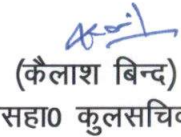 (कैलाश बिन्द)
सहा0 कुलसचिव